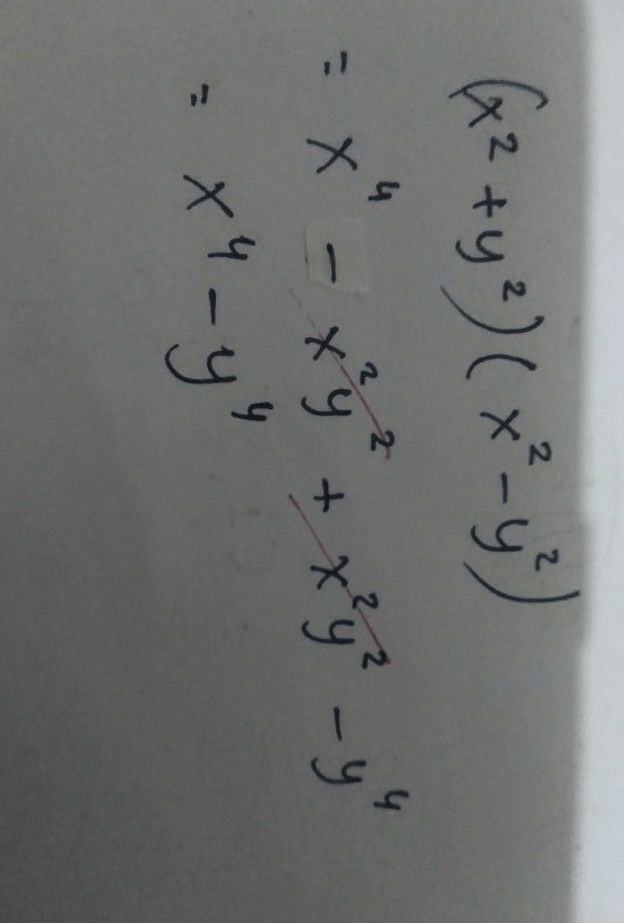 (x² + y²)(x² - y²)
= x⁴ - x²y² + x²y² - y⁴
= x⁴ - y⁴